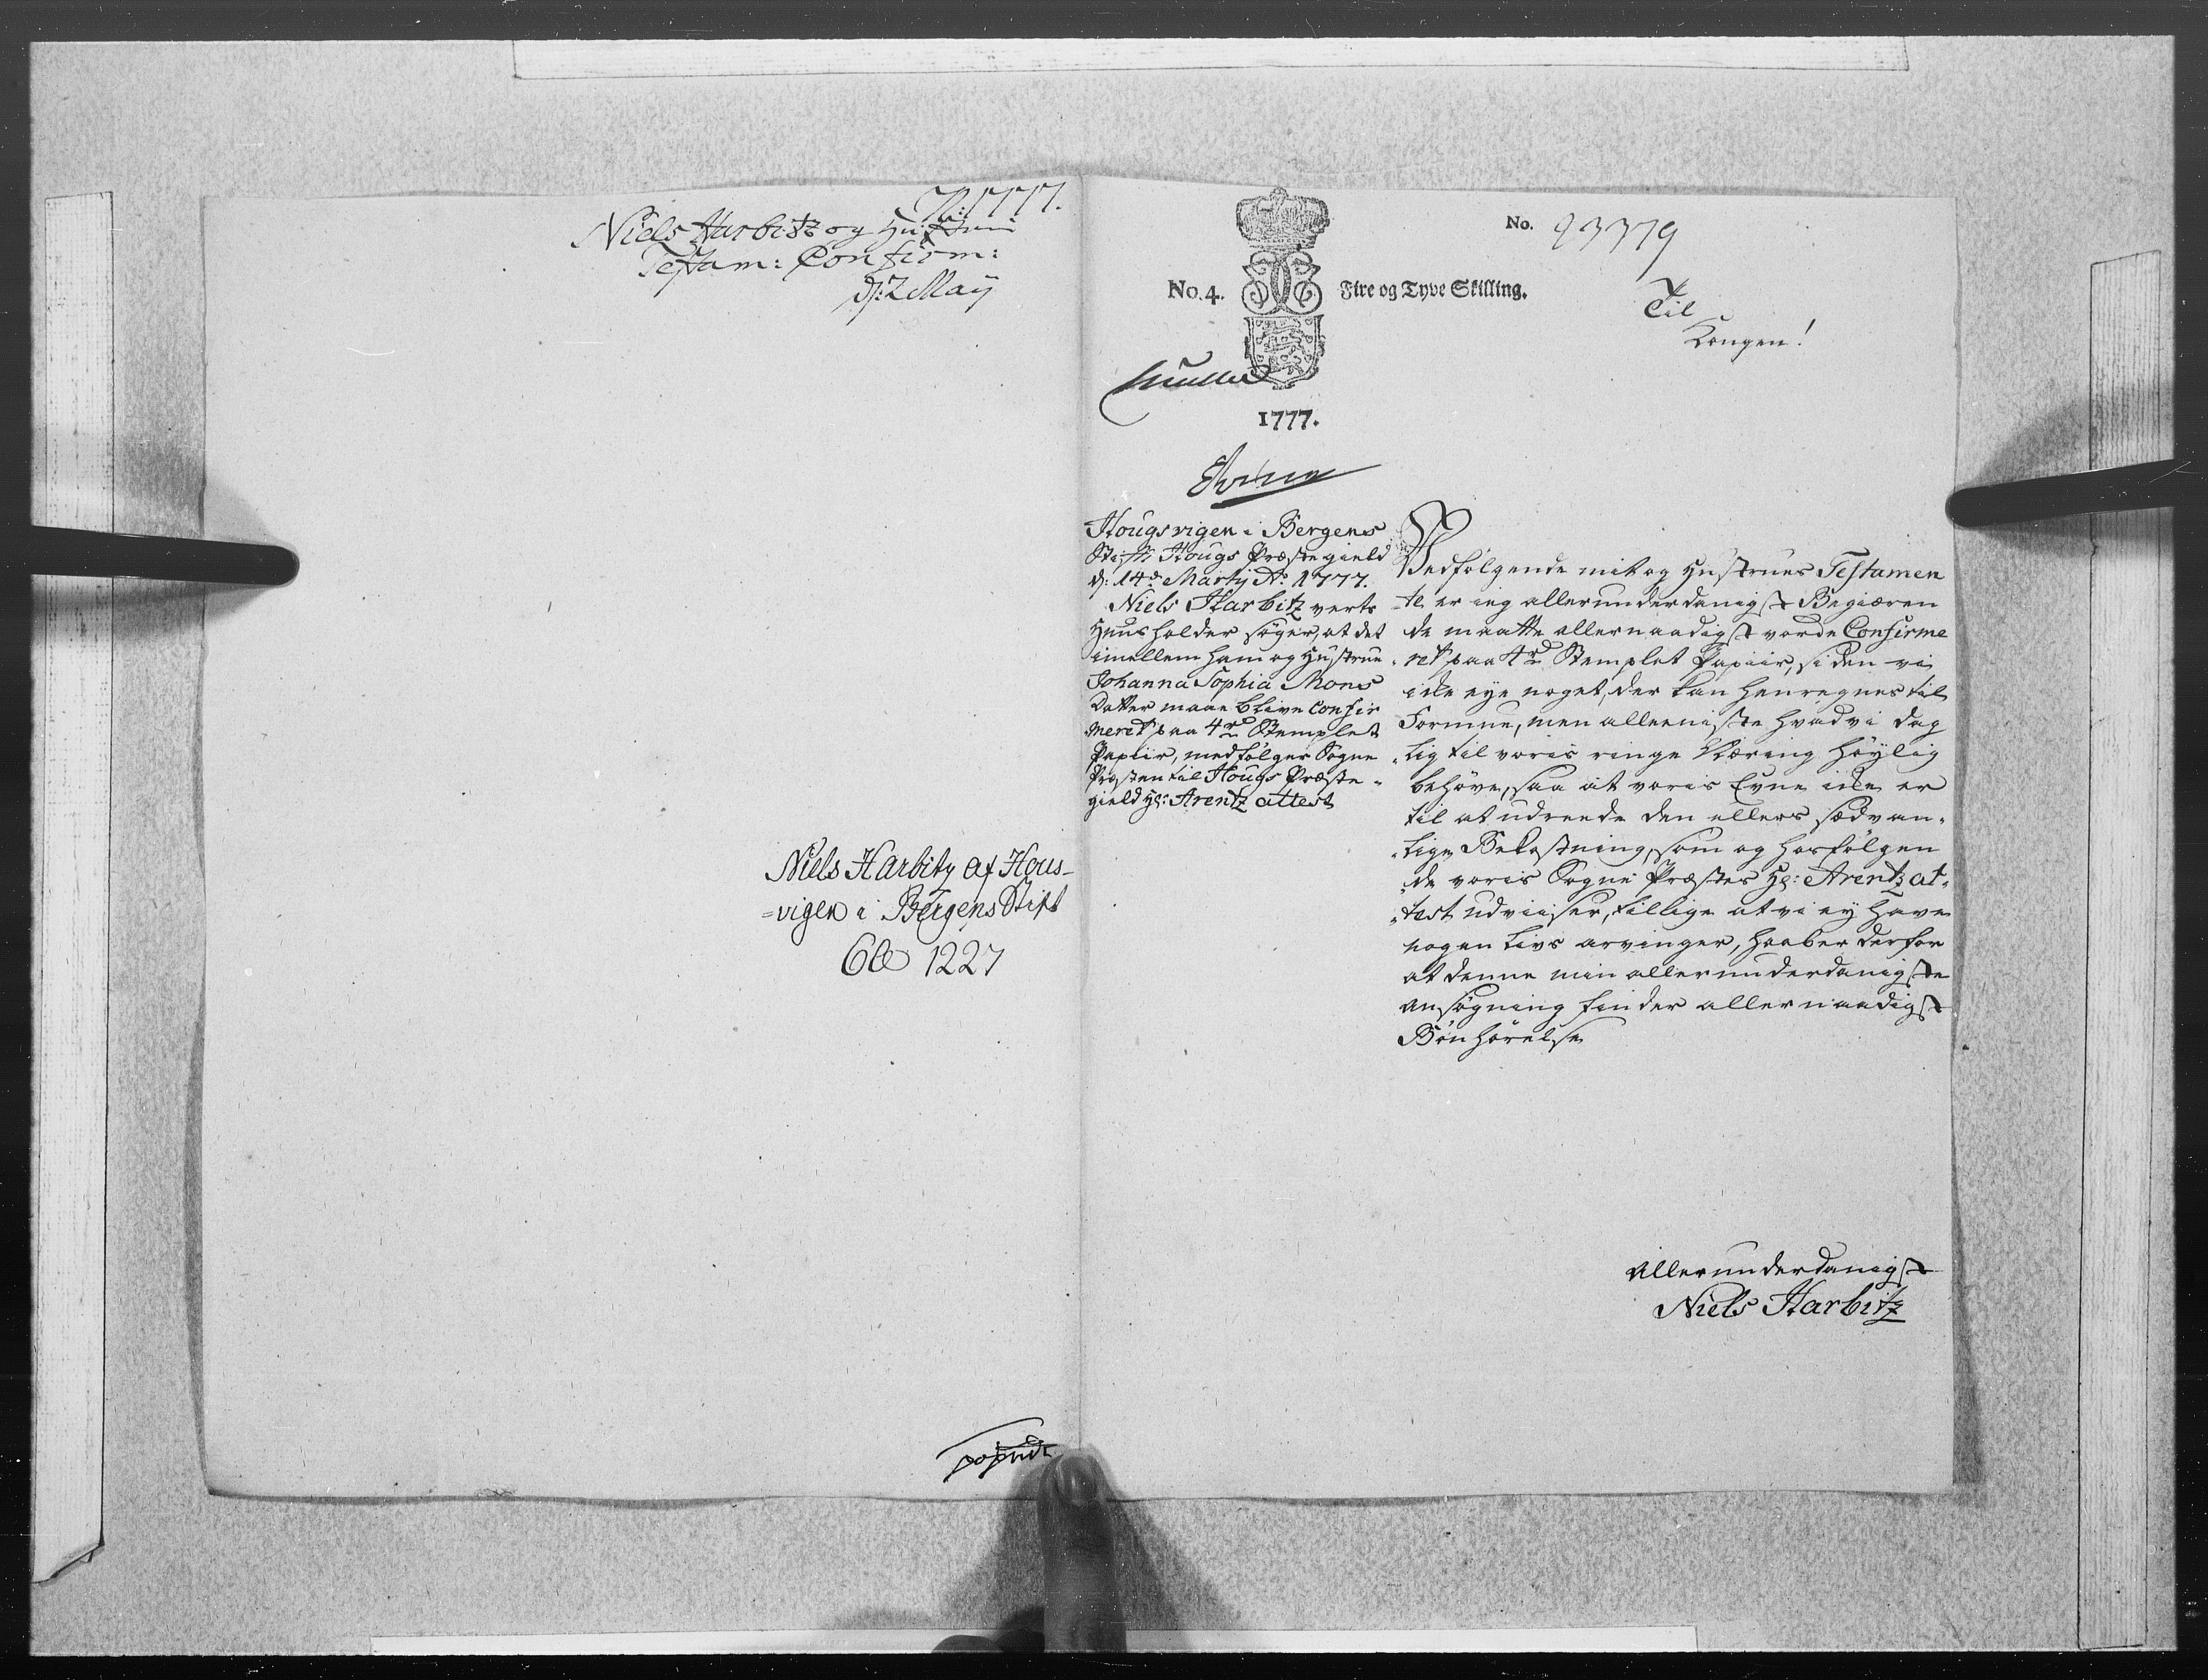 N: 1777.
Niels Harbitz og Hustrues
Testam: Confirm:
d: 2 May
Niels Harbitz af Hous-
=vigen i Bergens Stift
1227
No. 23379
No. 4. Fire og Tyve Skilling.
Til
Kongen!
1777.
Hougsvigen i Bergens
Stift Hougs Præstegield
d: 14de Martij Ao 1777.
Niels Harbitz verts
Huusholder søger, at det
imellem ham og Hustrue
Johanna Sophia Mons
Datter maae blive Confir
meret paa 4rd Stemplet
Papiir, medfølger Sogne
Præsten til Hougs Præste-
gield Hr: Arentz attest
Vedfølgende mit og Hustrues Testamen
-te er ieg allerunderdanigst Begiæren
de maatte allernaadigst vorde Confirme
-ret paa 4rd Stemplet Papiir, siden vi
icke eye noget, der kan henregnes til
Formue, men alleeniste hvad vi dag
-lig til voris ringe Næring höylig
behöve, saa at voris Evne icke er
til at udreede den ellers sædvan-
-lige Bekostning, som og hosfölgen
-de voris Sogne Præstes Hr: Arentz at-
-test udviiser, tillige at vi ey have
nogen Livs arvinger, haaber derfor
at denne min allerunderdanigste
ansögning finder allernaadigst
Bönhörelse
Allerunderdanigst
Niels Harbitz